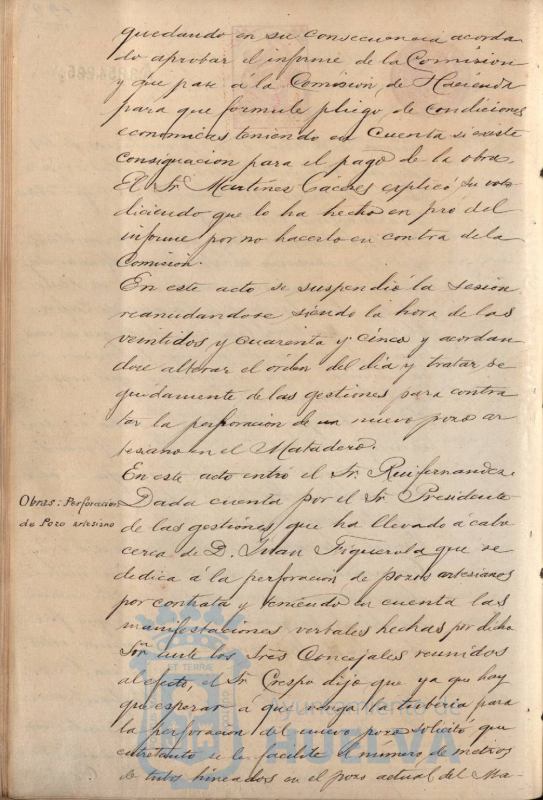 quedando en su consecuencia acorda
do aprobar el informe de la Comision
y que pase á la Comision de Hacienda
para que formule pliego de condiciones
economicas teniendo en cuenta si existe
consignacion para el pago de la obra.
El Sr. Martínez Cáceres explicó su voto
diciendo que lo ha hecho en pró del
informe por no hacerlo en contra de la
Comision.
En este acto se suspendió la sesion
reanudandose siendo la hora de las
veintidos y cuarenta y cinco y acordan
dose alterar el órden del dia y tratar se
guidamente de las gestiones para contra
tar la perforacion de un nuevo pozo ar
tesiano en el Matadero.
En este acto entró el Sr. Ruifernandez.
Obras: Perforacion
de Pozo artesiano
Dada cuenta por el Sr. Presidente
de las gestiones que ha llevado á cabo
cerca de D. Juan Figuerola que se
dedica á la perforacion de pozos artesianos
por contrata y teniendo en cuenta las
manifestaciones verbales hechas por dicho
Sór. ante los Sres Concejales reunidos
al efecto, el Sr. Crespo dijo que ya que hay
que esperar á que venga la tuberia para
la perforacion del nuevo pozo solicitó que
entretanto se le facilite el número de metros
de tubos hincados en el pozo actual del Ma-
ET TERRAE
Ayuntamiento
HUELVA